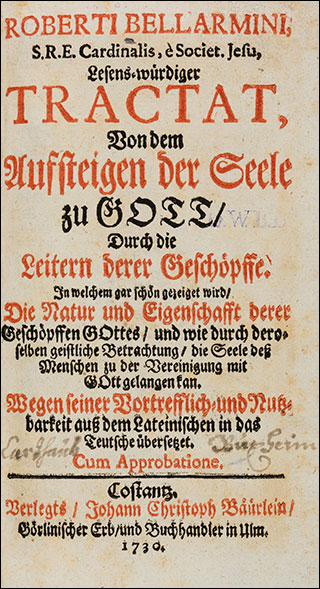 ROBERTI BELLARMINI,
S.R.E. Cardinalis, è Societ. Jesu,
Lesens-würdiger
TRACTAT,
Von dem
Aufsteigen der Seele
zu GOTT/
Durch die
Leitern derer Geschöpffe.
In welchem gar schön gezeiget wird/
Die Natur und Eigenschafft derer
Geschöpffen GOttes/ und wie durch dero-
selben geistliche Betrachtung/ die Seele deß
Menschen zu der Vereinigung mit
GOtt gelangen kan.
Wegen seiner Vortrefflich- und Nutz-
barkeit auß dem Lateinischen in das
Teutsche übersetzet.
Carthaus Buxheim
Cum Approbatione.
Costantz.
Verlegts/ Johann Christoph Bäurlein/
Görlinischer Erb/ und Buchhandler in Ulm.
1730.